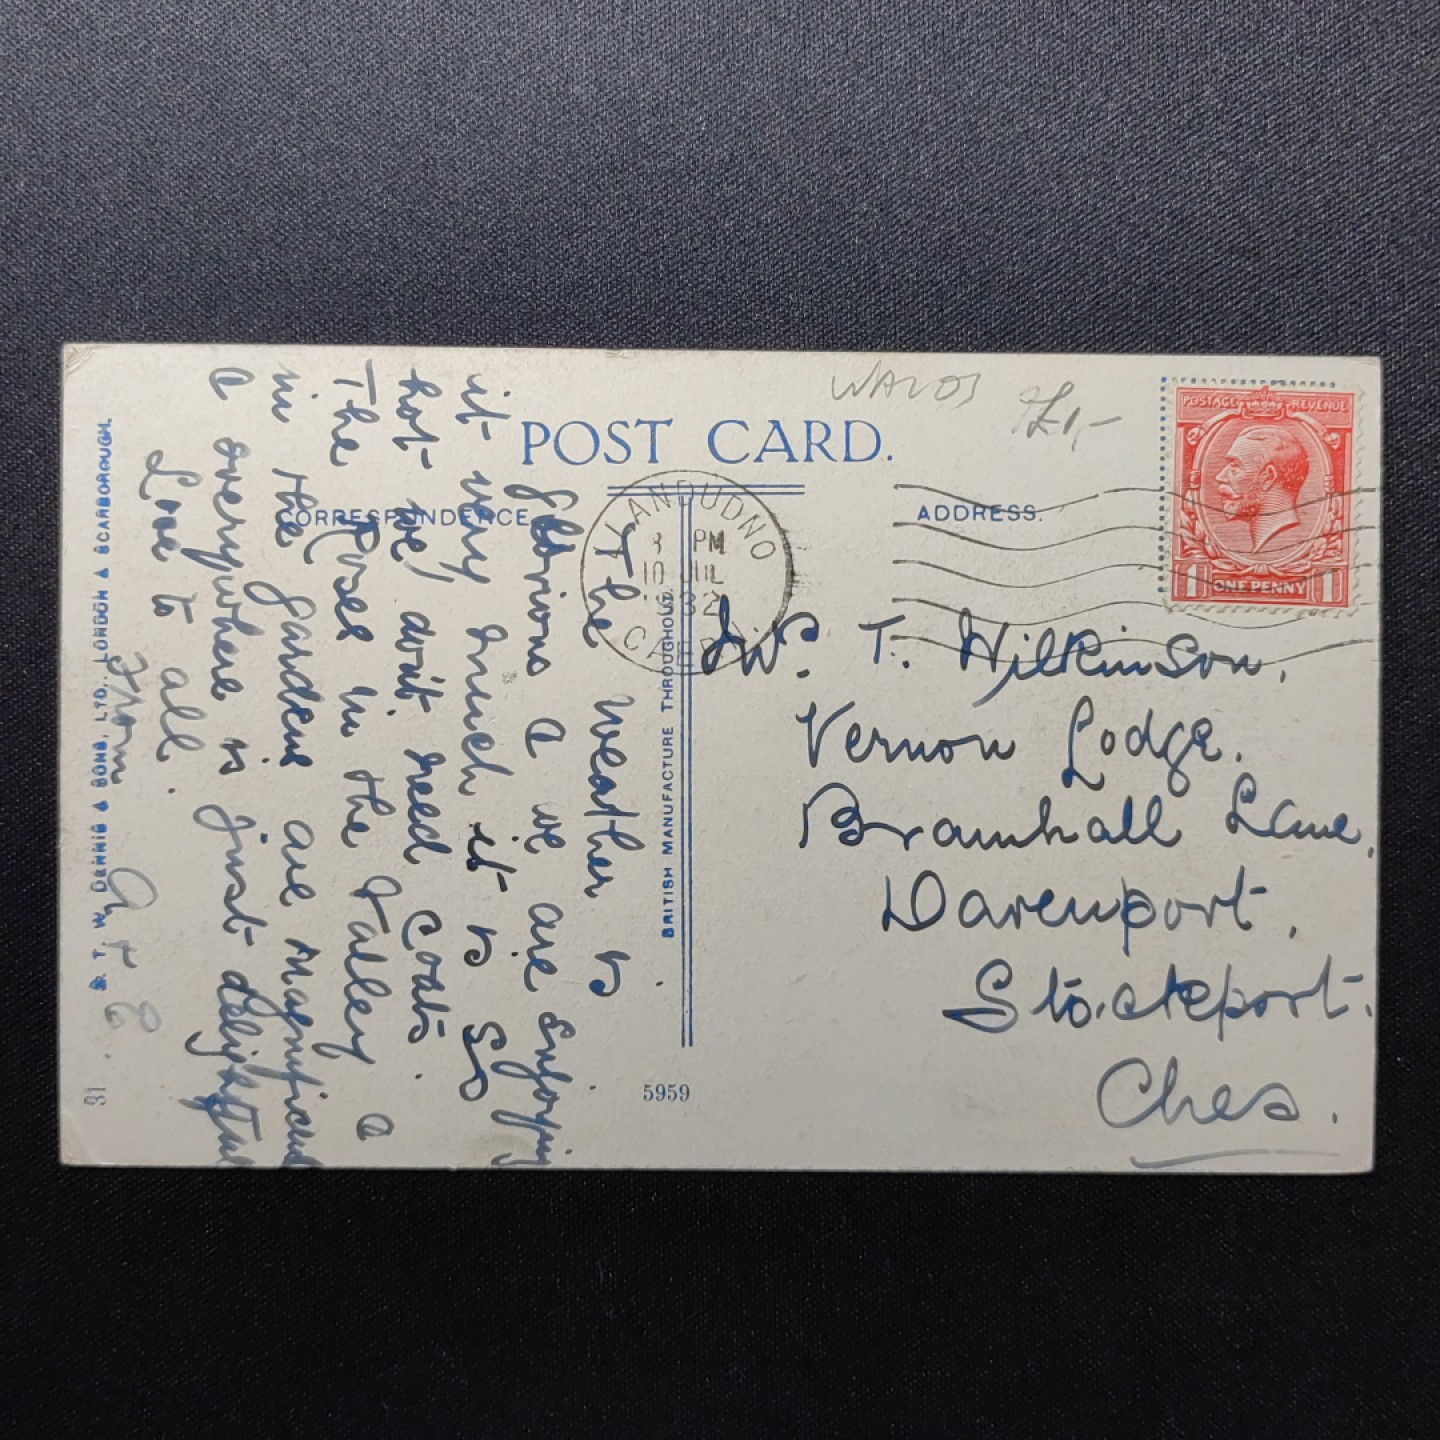 WALES £1,-
POST CARD.
CORRESPONDENCE.
ADDRESS.
POSTAGE REVENUE
1 ONE PENNY 1
LLANDUDNO
8 PM
10 JUL
1932
CAER
T. Wilkinson.
Vernon Lodge.
Bramhall Lane.
Davenport.
Stockport.
Ches.
The Weather is
Glorious & we are Enjoying
it very much it is so
hot we don't need coats.
The Roses in the Valley &
in the Gardens are Magnificent
& everywhere is just delightful
Love to all.
From A & E
BRITISH MANUFACTURE THROUGHOUT
5959
E. T. W. DENNIS & SONS, LTD., LONDON & SCARBOROUGH.
31